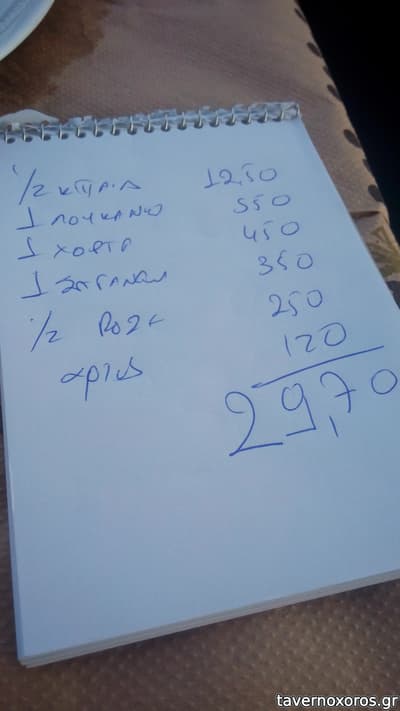 1/2 ΚΠΡΙΔ 12,50
1 ΛΟΥΚΑΝΙΚ 550
1 ΧΟΡΤΑ 450
1 ΣΑΓΑΝΑΚΙ 350
1/2 ΡΟΖΕ 250
αρτος 120
29,70
tavernoxoros.gr